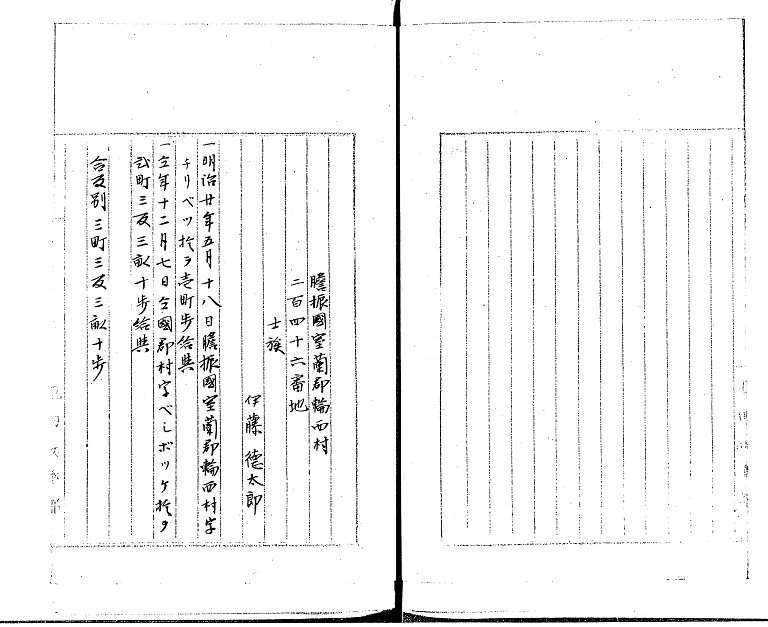 膽振國室蘭郡輪西村
二百四十六番地
士族
伊藤德太郎
一明治廿年五月十八日膽振國室蘭郡輪西村字
チリベツ於ヲ壱町歩給與
一仝年十二月七日仝國郡村字ベシボッケ於ヲ
弐町三反三畝十歩給與
合反別三町三反三畝十歩